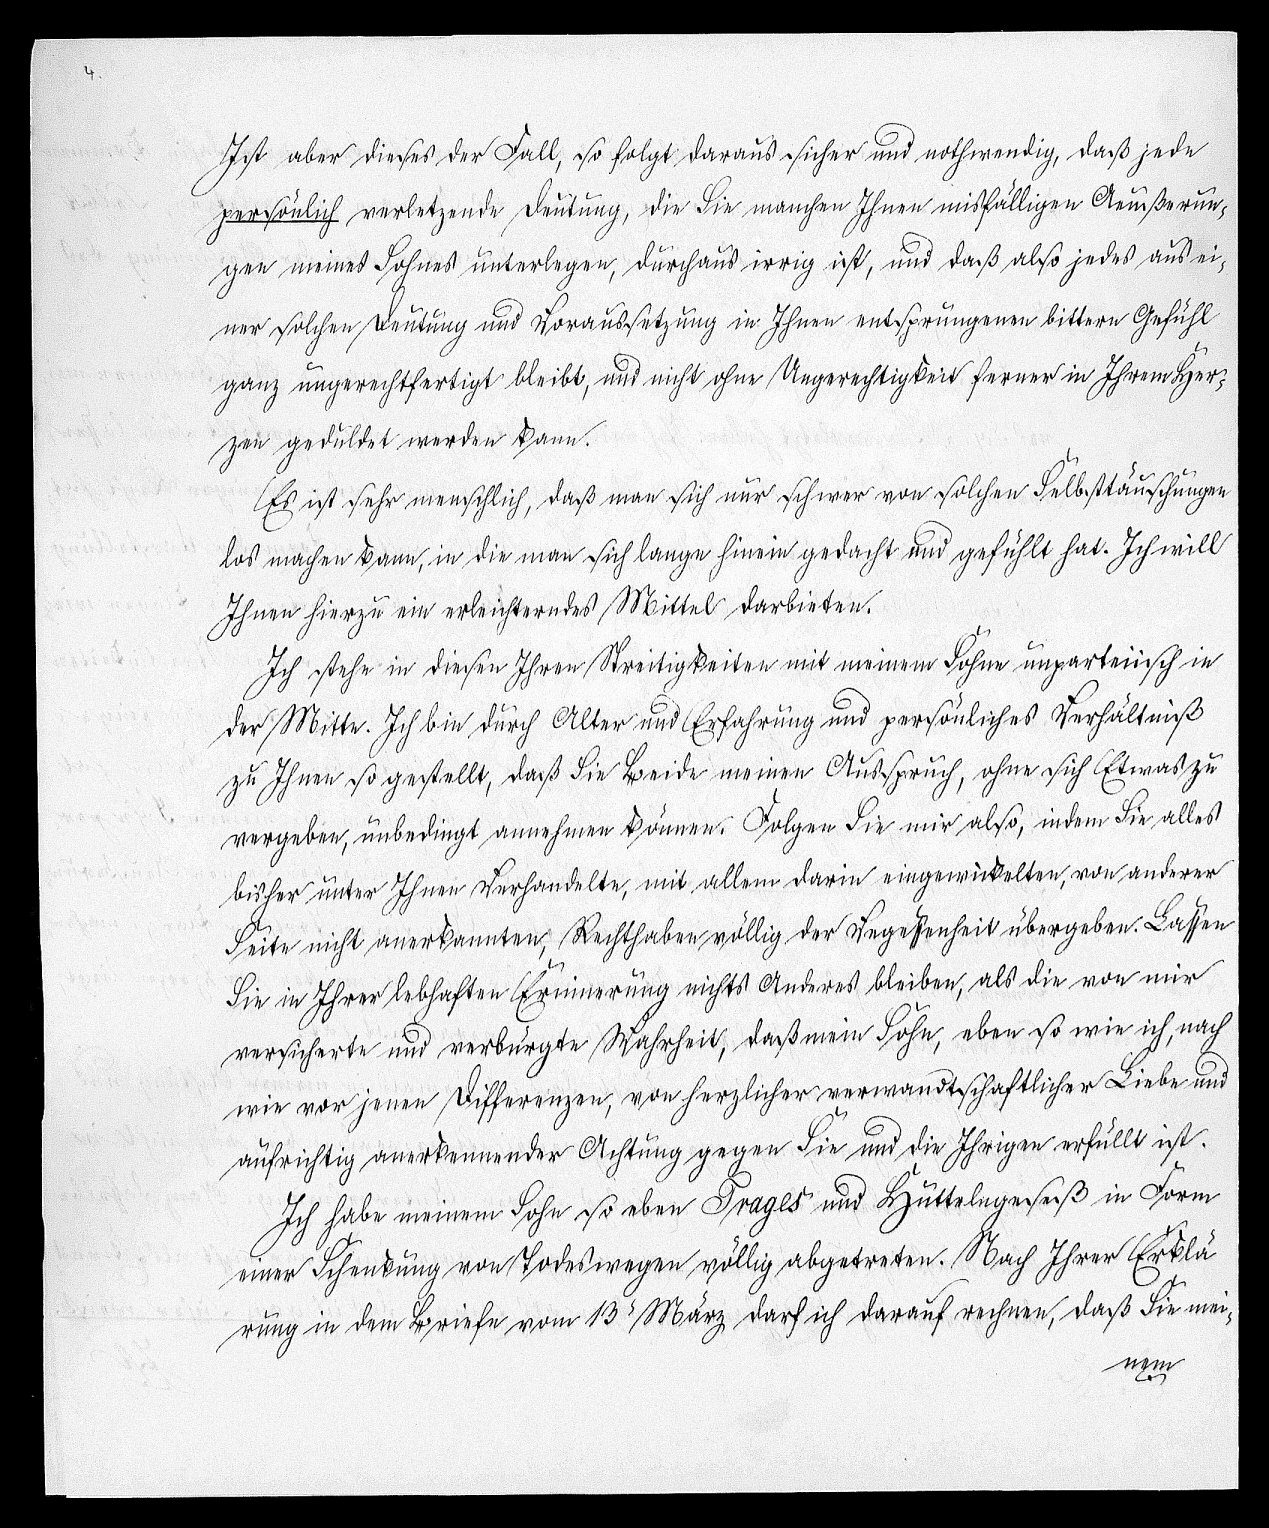 4.
Ist aber dieses der Fall, so folgt daraus sicher und nothwendig, daß jede
persönlich verletzende Deutung, die Sie manchen Ihnen misfälligen Aeußerun-
gen meines Sohnes unterlegen, durchaus irrig ist, und daß also jedes aus ei-
ner solchen Deutung und Voraussetzung in Ihnen entsprungenen bittern Gefühl
ganz ungerechtfertigt bleibt, und nicht ohne Ungerechtigkeit ferner in Ihrem Her-
zen geduldet werden kann.
Es ist sehr menschlich, daß man sich nur schwer von solchen Selbsttäuschungen
los machen kann, in die man sich lange hinein gedacht und gefühlt hat. Ich will
Ihnen hierzu ein erleichterndes Mittel darbieten.
Ich stehe in diesen Ihren Streitigkeiten mit meinem Sohne unparteiisch in
der Mitte. Ich bin durch Alter und Erfahrung und persönliches Verhältniß
zu Ihnen so gestellt, daß Sie Beide meinen Ausspruch, ohne sich Etwas zu
vergeben, unbedingt annehmen können. Folgen Sie mir also, indem Sie alles
bisher unter Ihnen Verhandelte, mit allem darin eingewickelten, von anderer
Seite nicht anerkannten, Rechthaben völlig der Vegessenheit übergeben. Lassen
Sie in Ihrer lebhaften Erinnerung nichts Anderes bleiben, als die von mir
versicherte und verbürgte Wahrheit, daß mein Sohn, eben so wie ich, nach
wie vor jenen Differenzen, von herzlicher verwandtschaftlicher Liebe und
aufrichtig anerkennender Achtung gegen Sie und die Ihrigen erfüllt ist.
Ich habe meinem Sohn so eben Trages und Hüttelngeseß in Form
einer Schenkung von Todeswegen völlig abgetreten. Nach Ihrer Erklä
rung in dem Briefe vom 13' März darf ich darauf rechnen, daß Sie mei-
nem